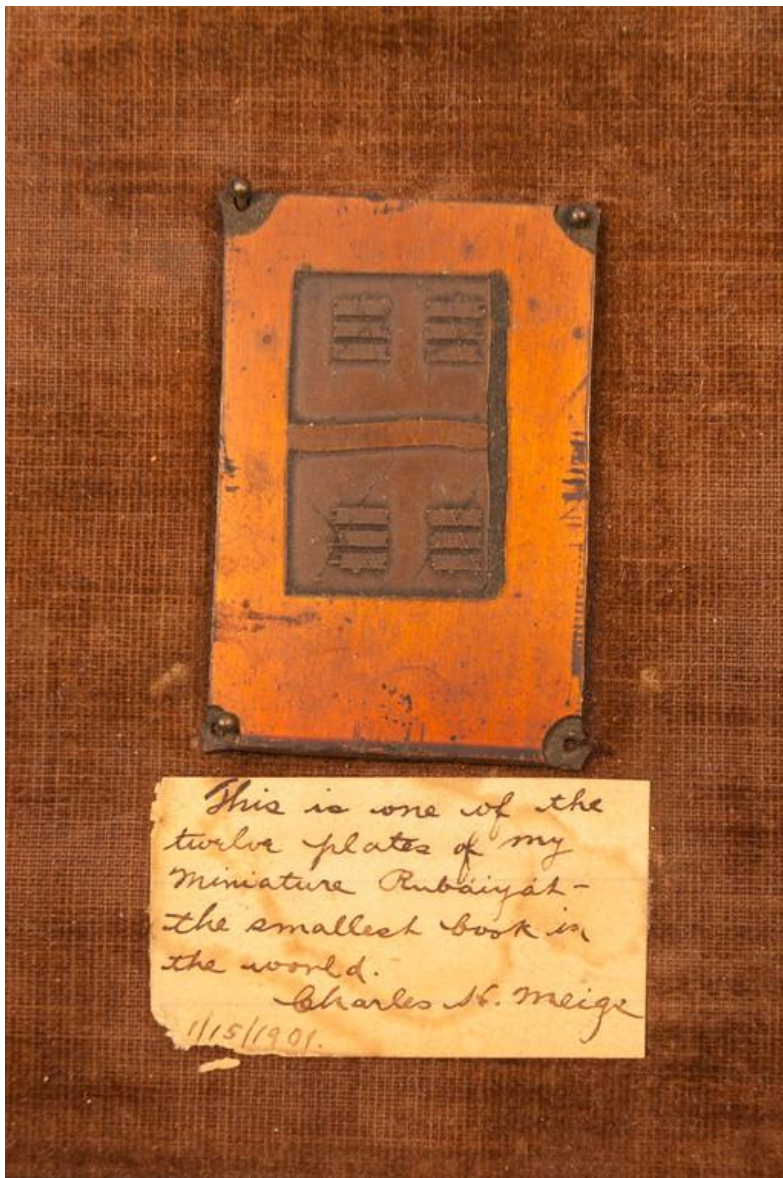 This is one of the
twelve plates of my
miniature Rubáiyát—
the smallest book in
the world.
Charles H. Meigs
1/15/1901.